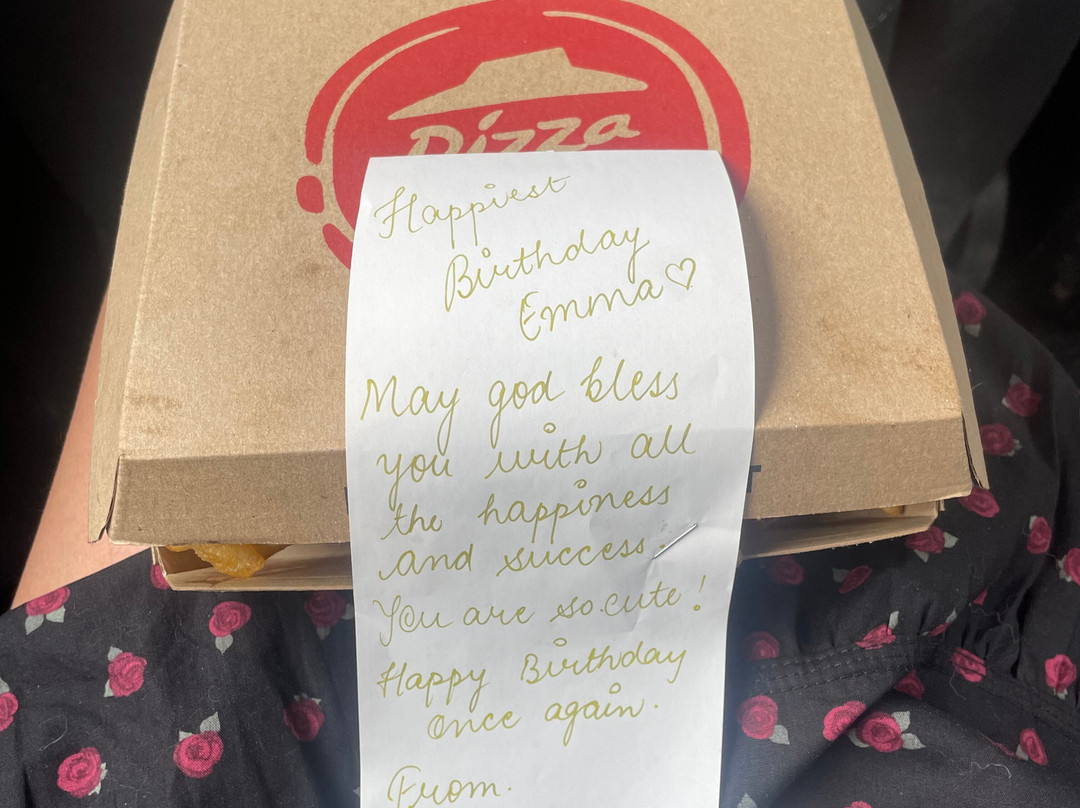 Pizza
Happiest
Birthday
Emma♡
May god bless
you with all
the happiness
and success.
You are so cute!
Happy Birthday
once again.
From.